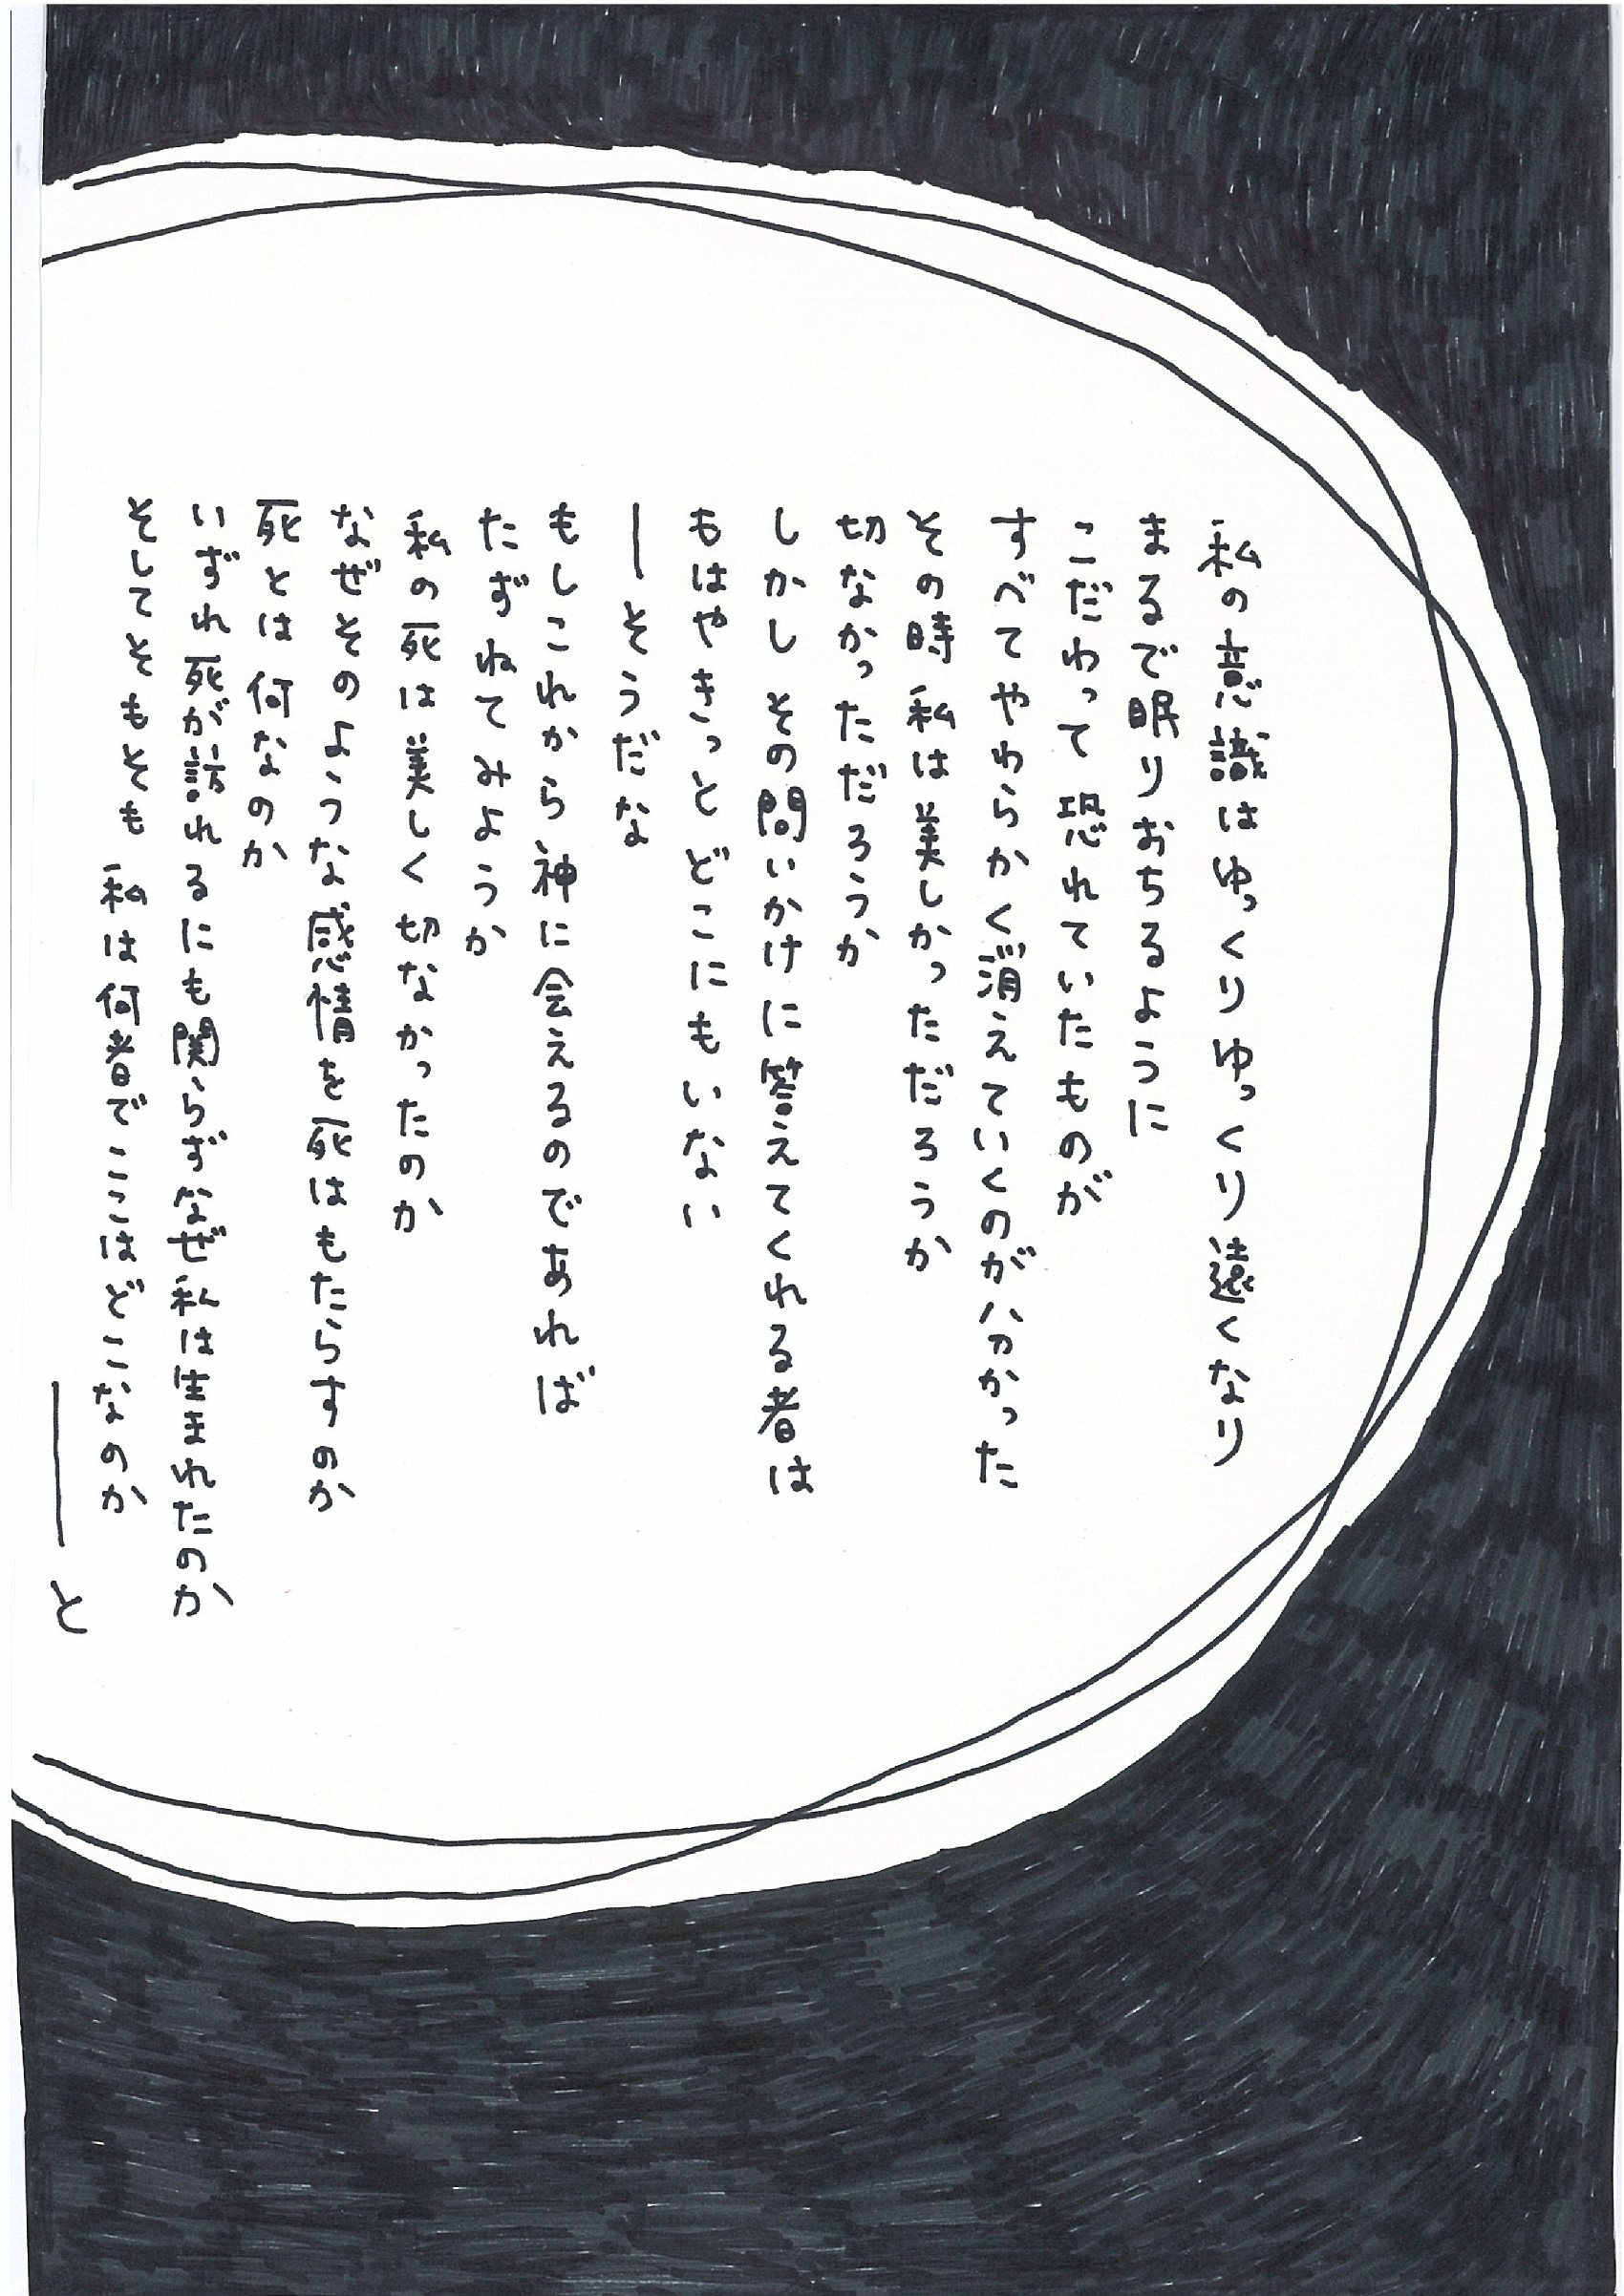 私の意識はゆっくりゆっくり遠くなり
まるで眠りおちるように
こだわって恐れていたものが
すべてやわらかく消えていくのが分かった
その時私は美しかっただろうか
切なかっただろうか
しかしその問いかけに答えてくれる者は
もはやきっとどこにもいない
―そうだな
もしこれから神に会えるのであれば
たずねてみようか
私の死は美しく切なかったのか
なぜそのような感情を死はもたらすのか
死とは何なのか
いずれ死が訪れるにも関らずなぜ私は生まれたのか
そしてそもそも私は何者でここはどこなのか
――と